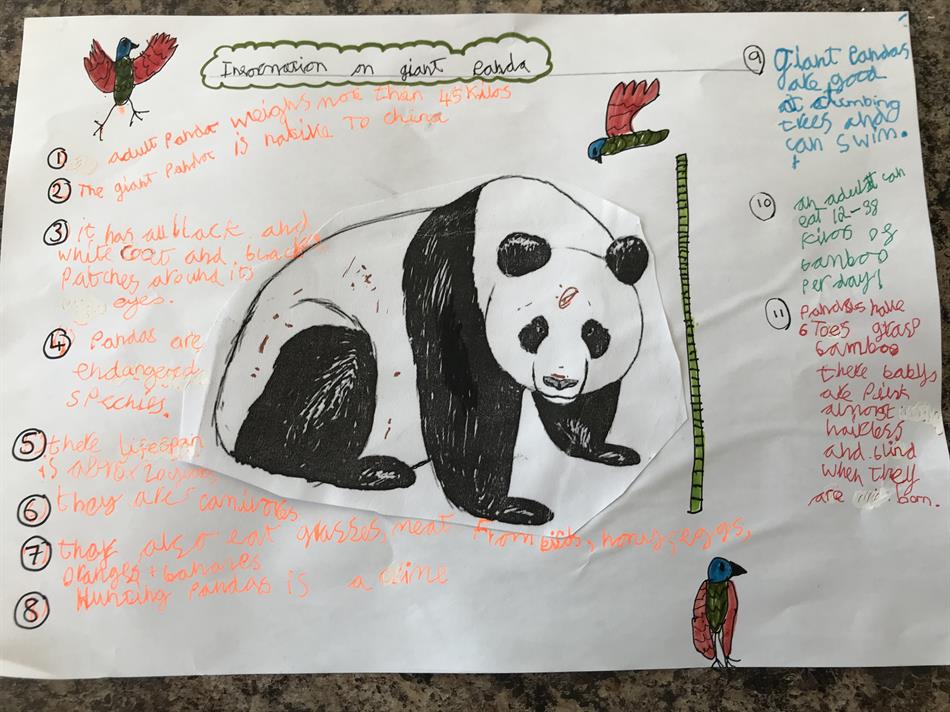 Information on giant Panda
1 adult Panda weighs more than 45 Kilos
2 The giant Panda is native To china
3 it has all black and
white coat and black
Patches around its
eyes.
4 Pandas are
endangered
SPechies.
5 there lifespan
is about 20 years
6 they are canivores
7 they also eat grasses, meat From birds, honey, eggs,
Oranges + bananas
8 Hunting Pandas is a crime
9 Giant Pandas
are good
at climbing
trees and
can swim.
10 an adult can
eat 12-38
Kilos of
bamboo
Per day!
11 Pandas have
6 Toes grasp
bamboo
there babys
are Pink
almost
hairless
and blind
when They
are born.